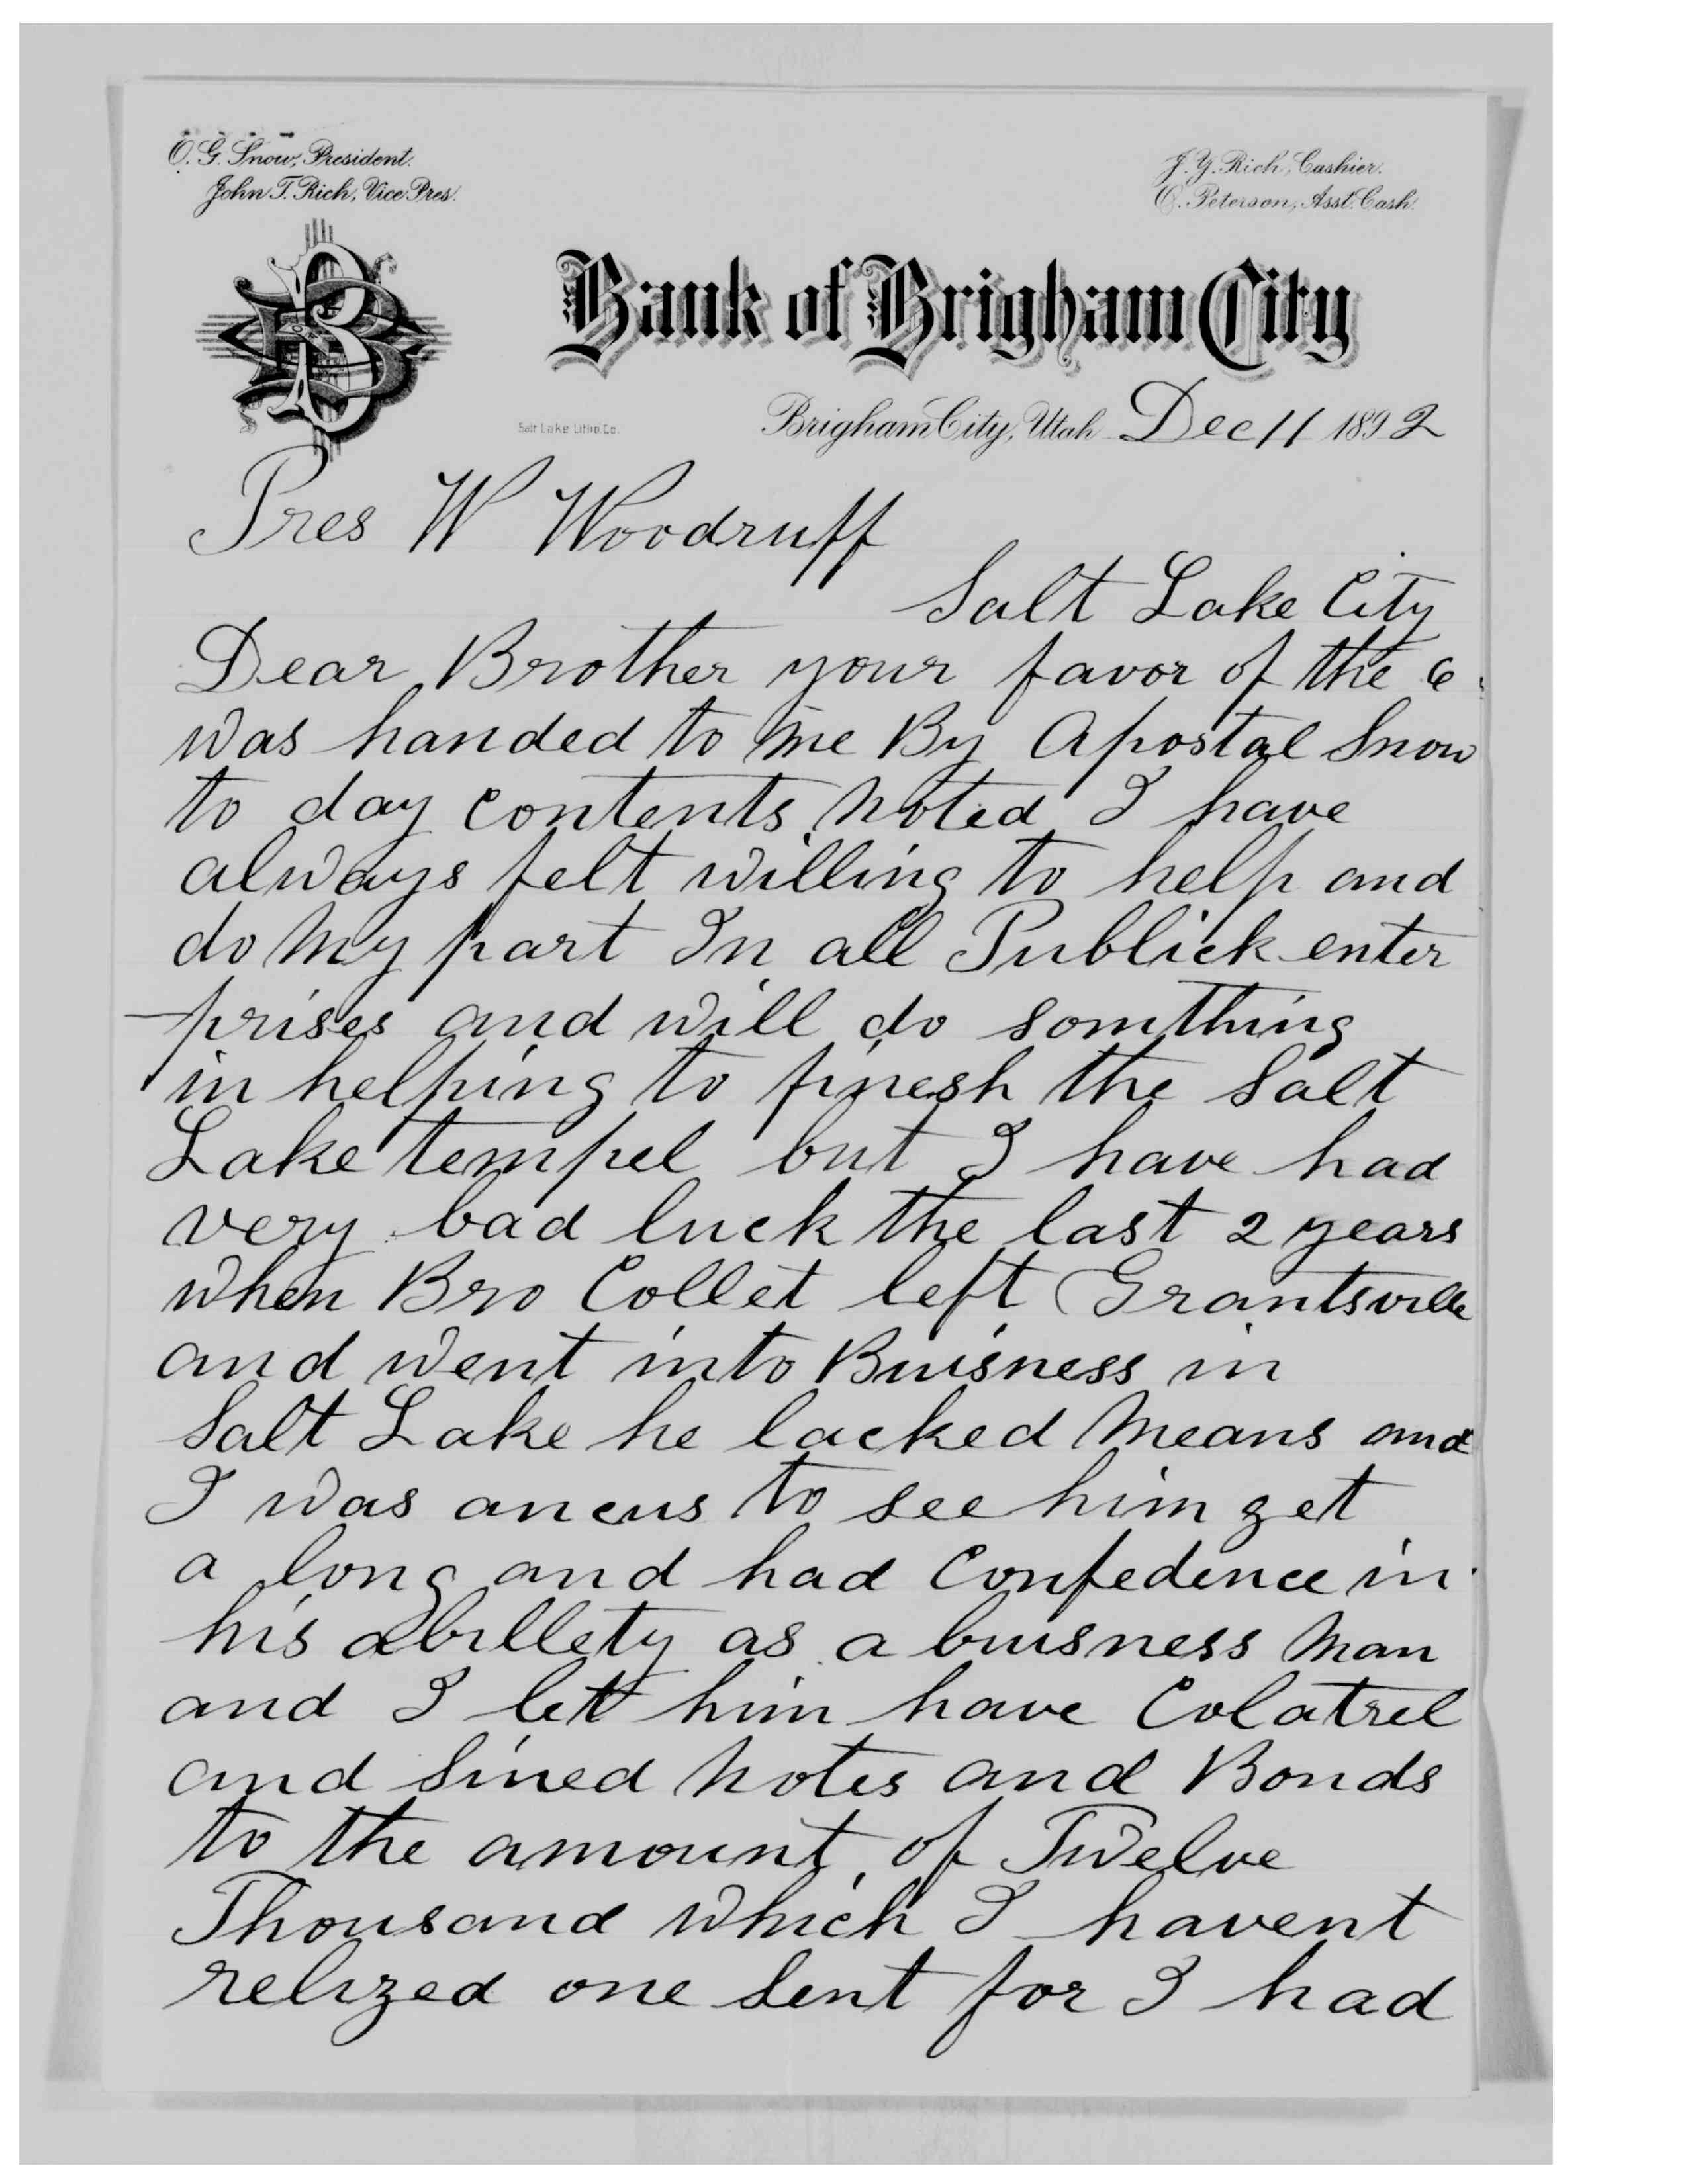 O. G. Snow, President.
John T. Rich, Vice Pres.
J. Y. Rich, Cashier.
C. Peterson, Asst. Cash.
Bank of Brigham City
Salt Lake Litho. Co.
Brigham City, Utah Dec 11 1892
Pres W Woodruff
Salt Lake City
Dear Brother your favor of the 6
was handed to me By Apostal Snow
to day Contents Noted I have
always felt willing to help and
do My part In all Publick enter
-prises and will do somthing
in helping to finesh the Salt
Lake tempel but I have had
very bad luck the last 2 years
when Bro Collet left Grantsville
and went into Buisness in
Salt Lake he lacked Means and
I was ancus to see him get
a long and had Confedence in
his abillety as a buisness Man
and I let him have Colatrel
and Sined Notes and Bonds
to the amount of Twelve
Thousand which I havent
relized one Sent for I had